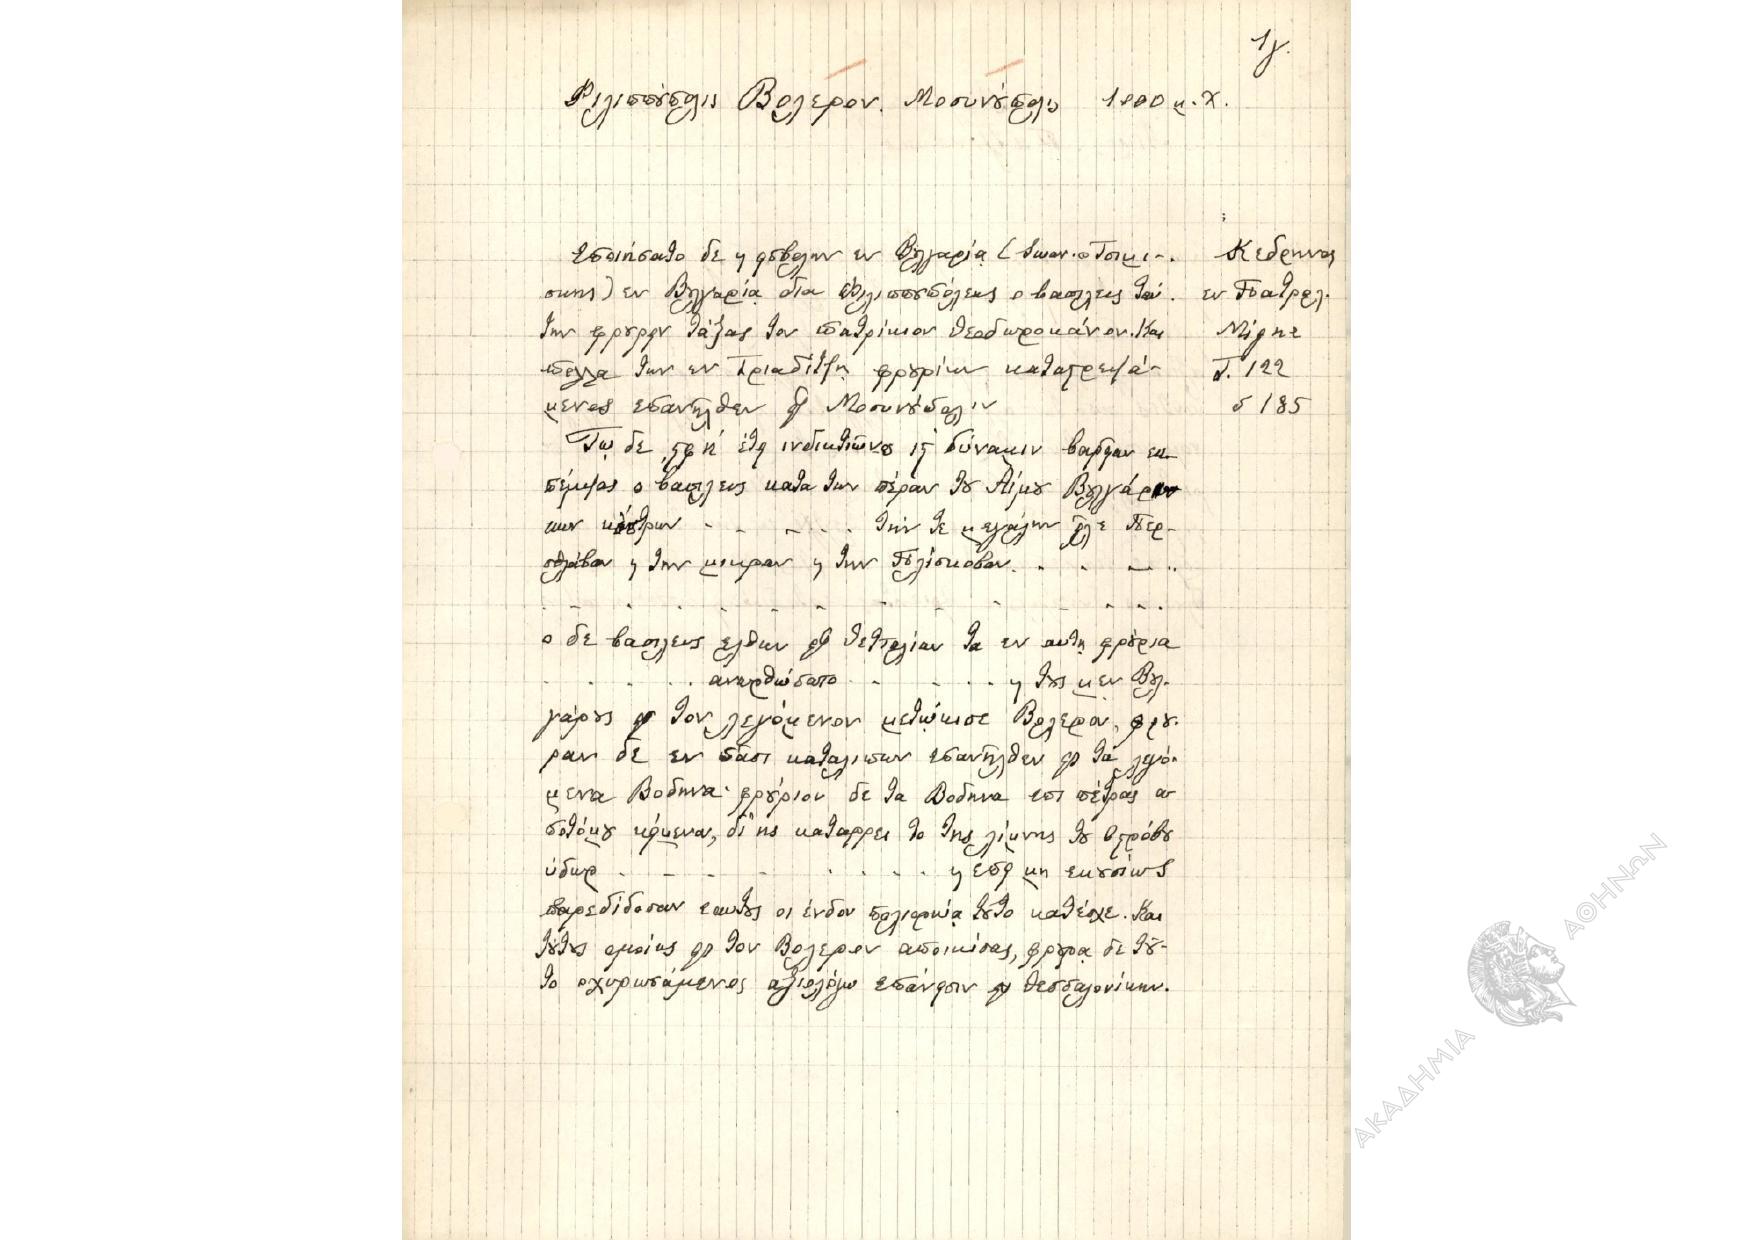 1γ.
Φιλιππούπολις Βολερον. Μοσυνούπολις 1000 μ.Χ.
Εποιήσατο δε η εσβολην εν Βουλγαρία (Ιωαν. ο Τσιμι-
σκης) εν Βουλγαρία δια Φιλιππουπόλεως ο βασιλευς ταύ.
την φρουρειν τάξας τον πατρίκιον Θεοδωροκάνον. Και
πολλα των εν Τριαδίτζη φρουρίων καταστρεψά-
μενος επανήλθεν εις Μοσυνούπολιν
Κεδρηνος
εν Πατρολ.
Migne
Τ. 122
σ 185
Τω δε ςφη' έτει ινδικτιώνος ιγ δύναμιν βαρείαν εκ-
πέμψας ο βασιλευς κατα των πέραν του Αίμου Βουλγάρι
κων κάστρων - - - - - την τε μεγάλην είλε Περ-
σθλάβαν η την μικραν η την Πλίσκοβαν. - - - -
- - - - - - - - - - - -
ο δε βασιλευς ελθων εις Θετταλίαν τα εν αυτη φρούρια
- - - - - ανωρθώσατο - - - - - η τους μεν Βουλ.
γάρους εις τον λεγόμενον μετώκισε Βολερον, φρου.
ραν δε εν πάσι καταλιπων επανήλθεν εις τα λεγό.
μενα Βοδηνα· φρούριον δε τα Βοδηνα επι πέτρας α
ποτόμου κείμενον, δι' ης καταρρει το της λίμνης του Οστρόβου
ύδωρ - - - - - - - - - η επει μη εκουσίως
παρεδίδοσαν εαυτους οι ένδον πολιορκία τουτο κατέσχε. Και
τούτους ομοίως εις τον Βολερον αποικίσας, φρουρα δε τού-
το οχυρωσάμενος αξιολόγω επάνεισιν εις Θεσσαλονίκην.
ΑΚΑΔΗΜΙΑ ΑΘΗΝΩΝ